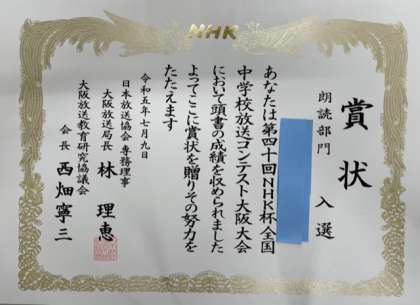 NHK
賞状
朗読部門 入選
あなたは第四十回NHK杯全国
中学校放送コンテスト大阪大会
において頭書の成績を収められました
よってここに賞状を贈りその努力を
たたえます
令和五年七月九日
日本放送協会 専務理事
大阪放送局長 林 理恵
大阪放送教育研究協議会
会長 西畑寧三